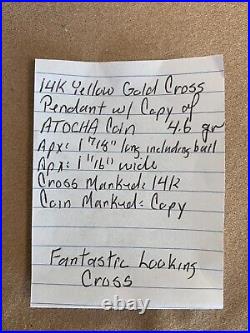 14K Yellow Gold Cross
Pendant w/ Copy of
ATOCHA Coin 4.6 gr
Apx: 1 7/8" long including bail
Apx: 1 1/16" wide
Cross Marked: 14K
Coin Marked: Copy
Fantastic Looking
Cross